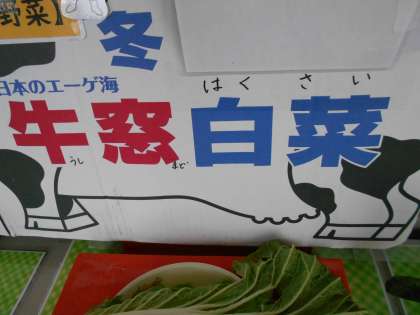 野菜】
冬
日本のエーゲ海
はくさい
牛窓白菜
うし まど